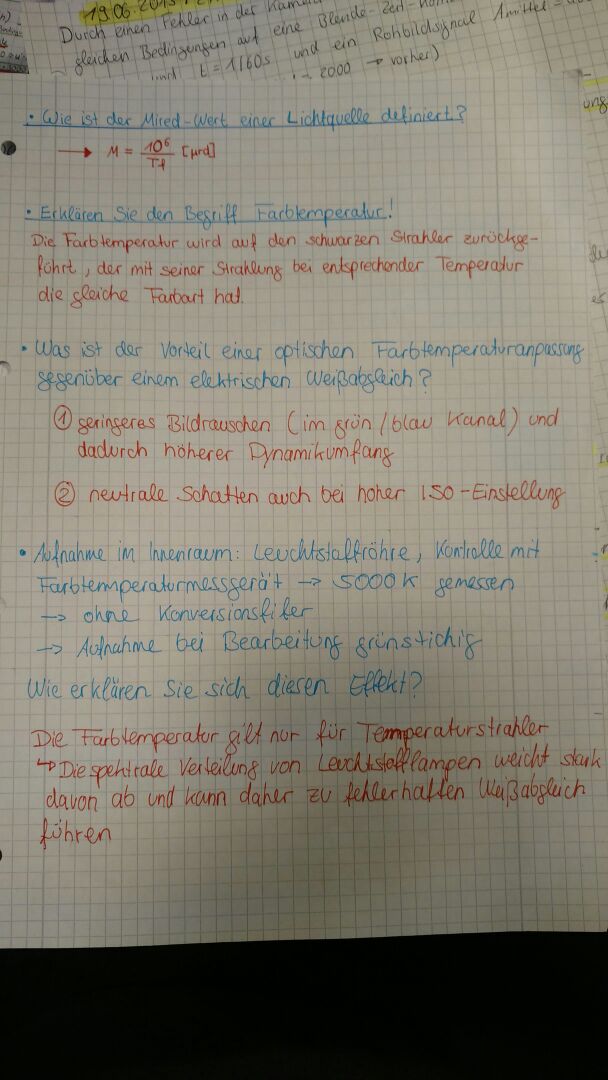 19.06.2015
Durch einen Fehler in der Kamera
gleichen Bedingungen auf eine Blende-Zeit-
und t = 1/60s und ein Rohbildsignal 1mittel =
2000 → vorher)
• Wie ist der Mired-Wert einer Lichtquelle definiert?
→ M = 10⁶/Tf [µrd]
• Erklären Sie den Begriff Farbtemperatur!
Die Farbtemperatur wird auf den schwarzen Strahler zurückge-
führt, der mit seiner Strahlung bei entsprechender Temperatur
die gleiche Farbart hat.
• Was ist der Vorteil einer optischen Farbtemperaturanpassung
gegenüber einem elektrischen Weißabgleich?
① geringeres Bildrauschen (im grün/blau Kanal) und
dadurch höherer Dynamikumfang
② neutrale Schatten auch bei hoher ISO-Einstellung
• Aufnahme im Innenraum: Leuchtstoffröhre, Kontrolle mit
Farbtemperaturmessgerät → 5000K gemessen
→ ohne Konversionsfilter
→ Aufnahme bei Bearbeitung grünstichig
Wie erklären Sie sich diesen Effekt?
Die Farbtemperatur gilt nur für Temperaturstrahler
↳ Die spektrale Verteilung von Leuchtstofflampen weicht stark
davon ab und kann daher zu fehlerhaften Weißabgleich
führen